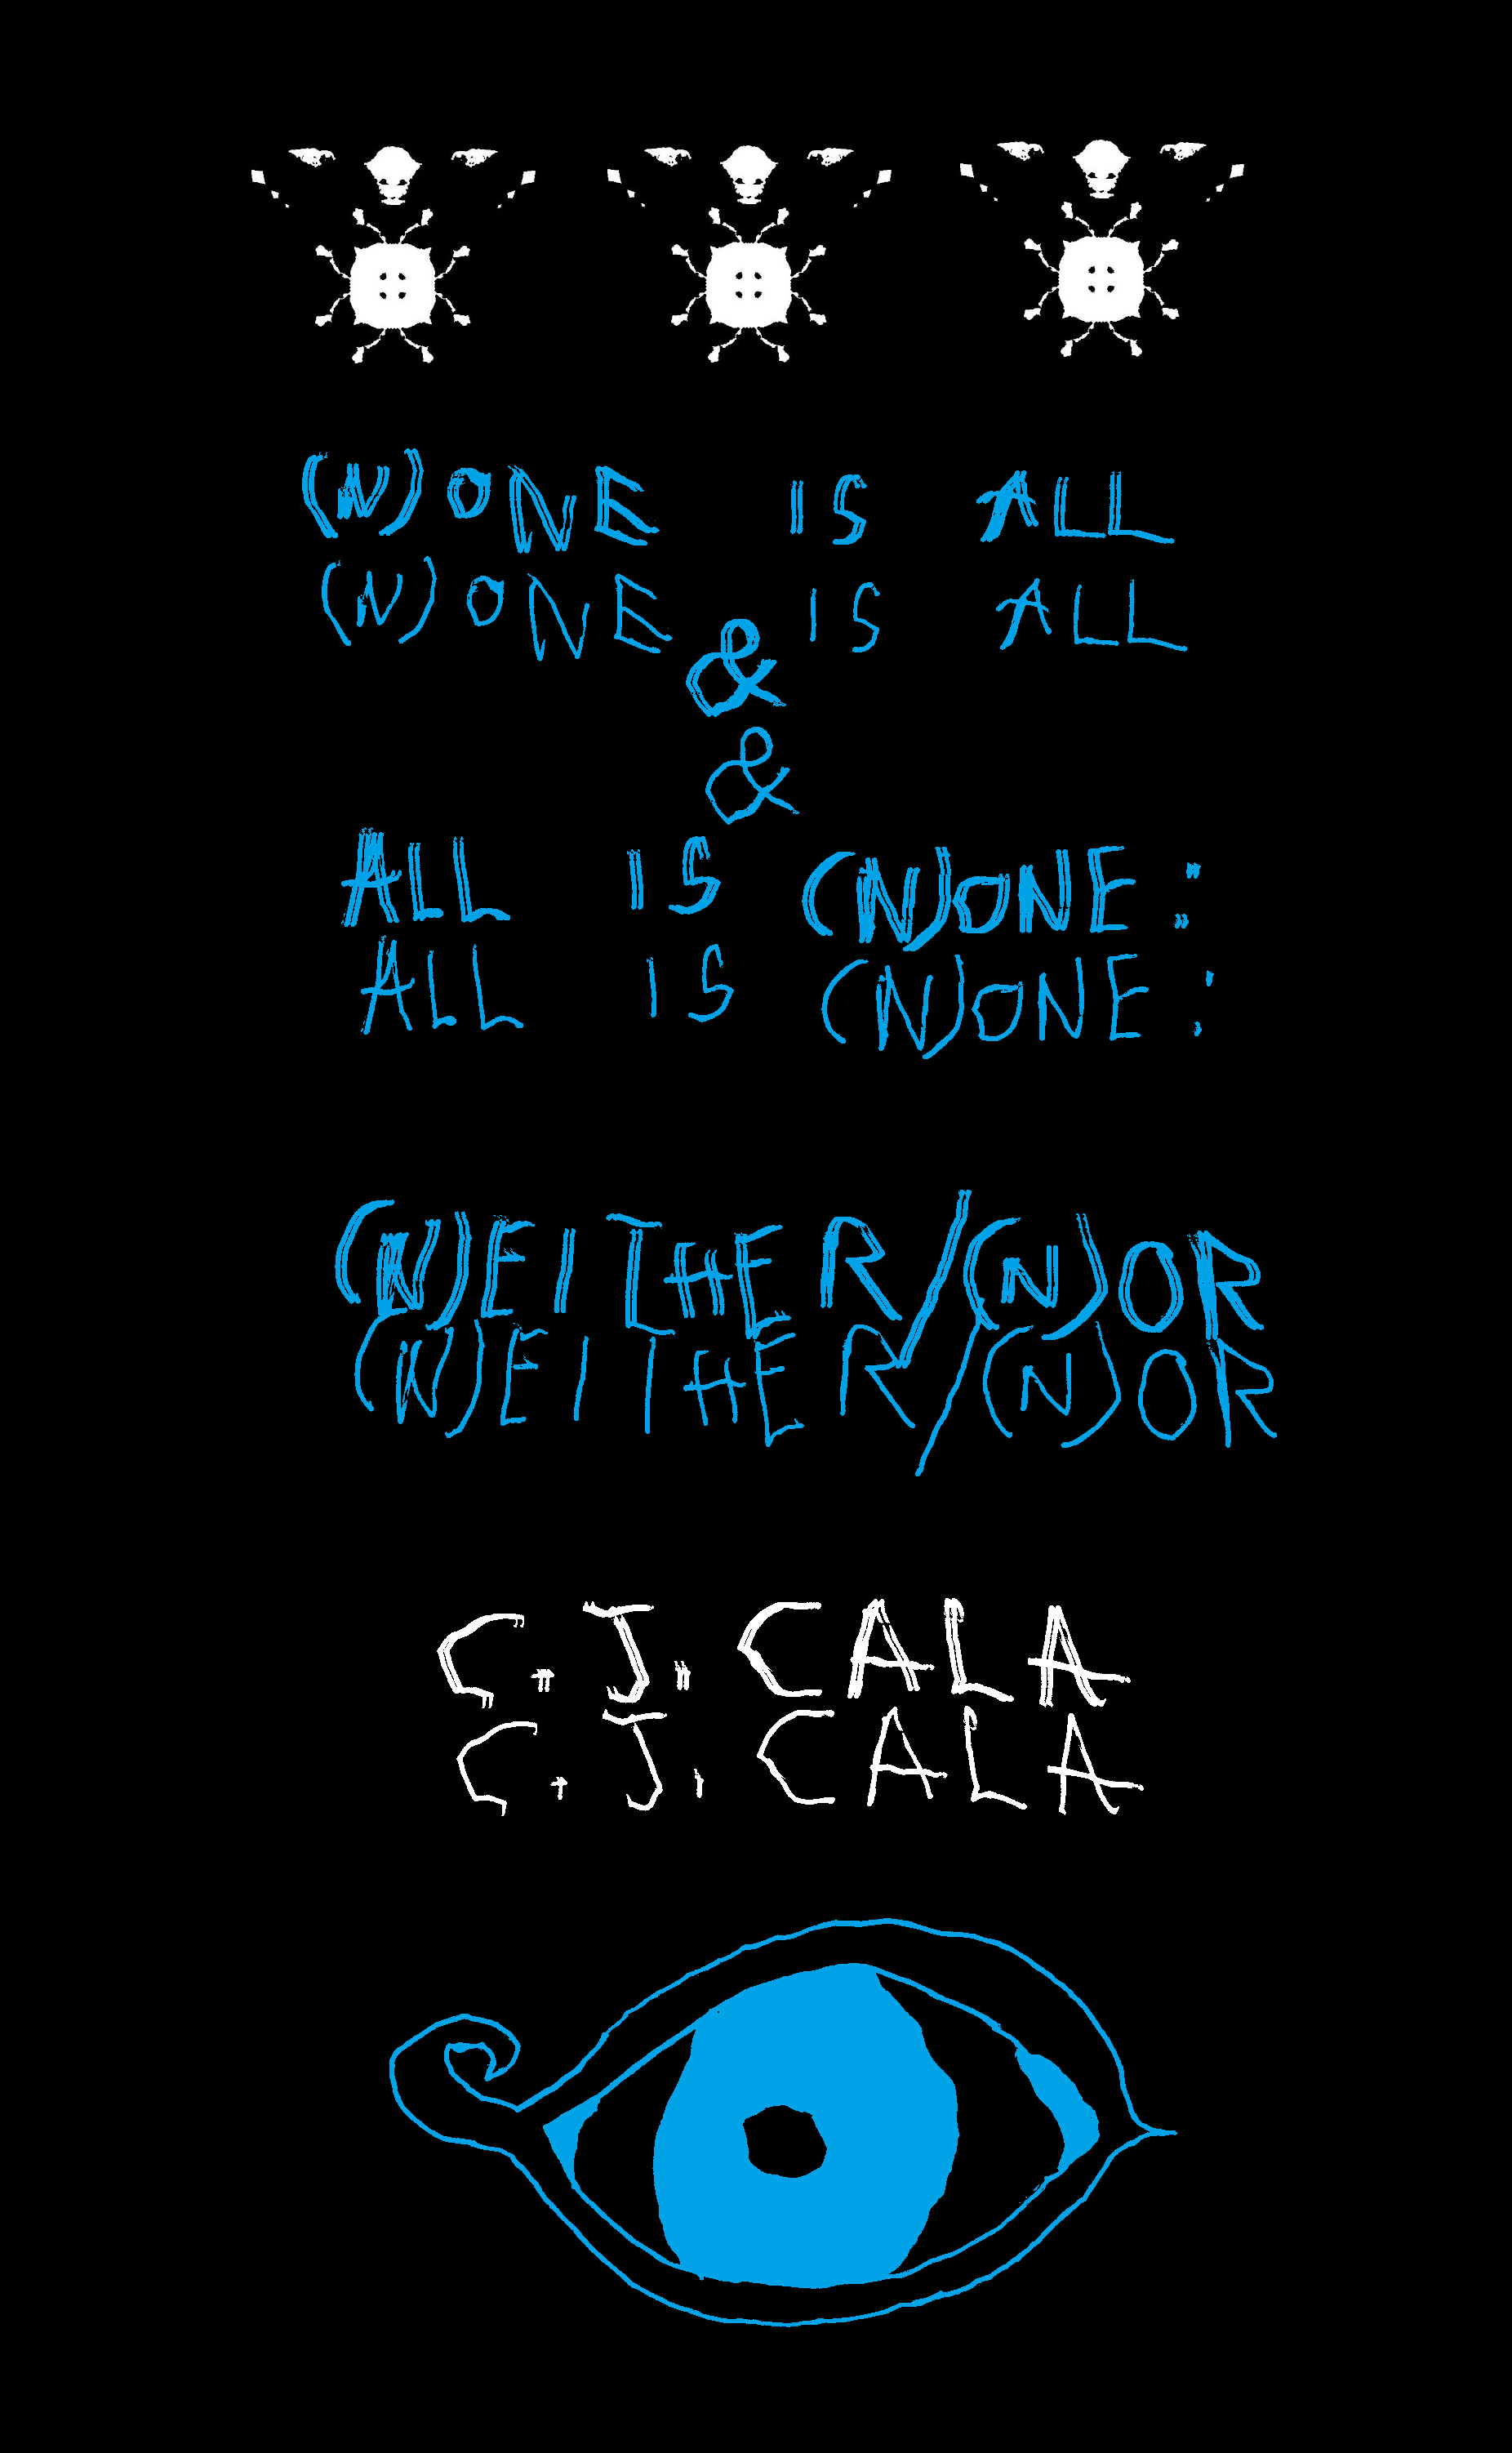 (N)ONE IS ALL
(N)ONE IS ALL
&
&
ALL IS (N)ONE:
ALL IS (N)ONE:
(N)EITHER/(N)OR
(N)EITHER/(N)OR
C.J. CALA
C.J. CALA